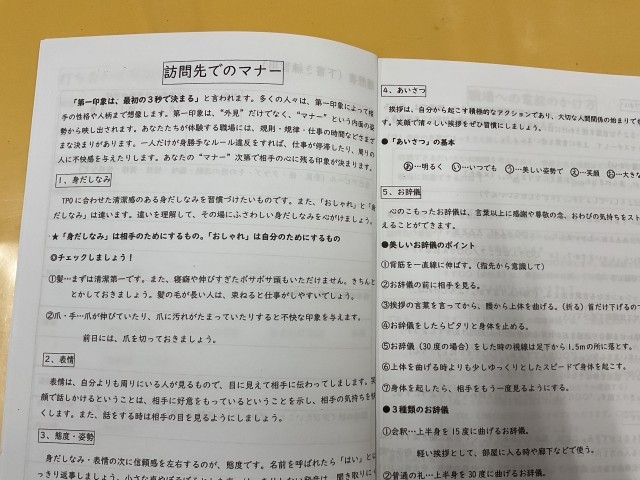 訪問先でのマナー
「第一印象は、最初の3秒で決まる」と言われます。多くの人々は、第一印象によって相
手の性格や人柄まで想像します。第一印象は、“外見”だけでなく、“マナー”という内面の姿
勢から映し出されます。あなたたちが体験する職場には、規則・規律・仕事の時間などさまざ
まな決まりがあります。一人だけが身勝手なルール違反をすれば、仕事が停滞したり、周りの
人に不快感を与えたりします。あなたの“マナー”次第で相手の心に残る印象が決まります。
1、身だしなみ
TPOに合わせた清潔感のある身だしなみを習慣づけたいものです。また、「おしゃれ」と「身
だしなみ」は違います。違いを理解して、その場にふさわしい身だしなみを心がけましょう。
★「身だしなみ」は相手のためにするもの。「おしゃれ」は自分のためにするもの
◎チェックしましょう!
①髪…まずは清潔第一です。また、寝癖や伸びすぎたボサボサ頭もいただけません。きちんと
とかしておきましょう。髪の毛が長い人は、束ねると仕事がしやすいでしょう。
②爪・手…爪が伸びていたり、爪に汚れがたまっていたりすると不快な印象を与えます。
前日には、爪を切っておきましょう。
2、表情
表情は、自分よりも周りにいる人が見るもので、目に見えて相手に伝わってしまいます。笑
顔で話しかけるということは、相手に好意をもっているということを示し、相手の気持ちを快
くします。また、話をする時は相手の目を見るようにしましょう。
3、態度・姿勢
身だしなみ・表情の次に信頼感を左右するのが、態度です。名前を呼ばれたら「はい」と
っきり返事しましょう。
4、あいさつ
挨拶は、自分から起こす積極的なアクションであり、大切な人間関係の始まりでも
す。笑顔で清々しい挨拶をぜひ習慣にしましょう。
●「あいさつ」の基本
あ…明るく い…いつでも さ…美しい姿勢で え…笑顔 お…大きな
5、お辞儀
心のこもったお辞儀は、言葉以上に感謝や尊敬の念、おわびの気持ちをス
えることができます。
●美しいお辞儀のポイント
①背筋を一直線に伸ばす。(指先から意識して)
②お辞儀の前に相手を見る。
③挨拶の言葉を言ってから、腰から上体を曲げる。(折る)首だけ下げるので
④お辞儀をしたらピタリと身体を止める。
⑤お辞儀(30度の場合)をした時の視線は足下から1.5mの所に落とす。
⑥上体を曲げる時よりも少しゆっくりとしたスピードで身体を起こす。
⑦身体を起こしたら、相手をもう一度見るようにする。
●3種類のお辞儀
①会釈…上半身を15度に曲げるお辞儀。
軽い挨拶として、部屋に入る時や廊下などで使う。
②普通の礼…上半身を30度に曲げるお辞儀。